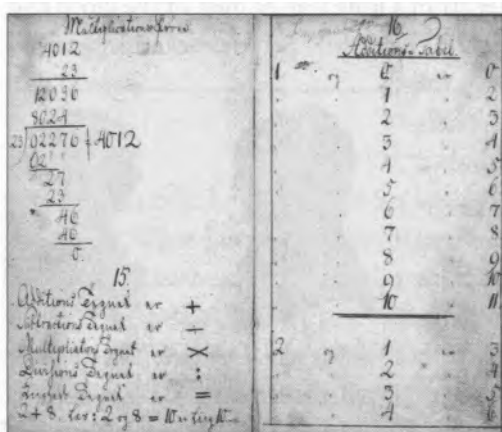 Multiplications Prøve
4012
23
12036
8024
23 92276 4012
92
27
23
46
46
0
15
Additions Tegnet er +
Subtractions Tegnet er ÷
Multiplications Tegnet er ×
Divisions Tegnet er :
Tegnet er =
2 + 8, læs: 2 og 8 = 10 er lig 10
16
Additions Tabel
1 og 0 er
1 2
2 3
3 4
4 5
5 6
6 7
7 8
8 9
9 10
10 11
2 og 1 er 3
2 4
3 5
4 6